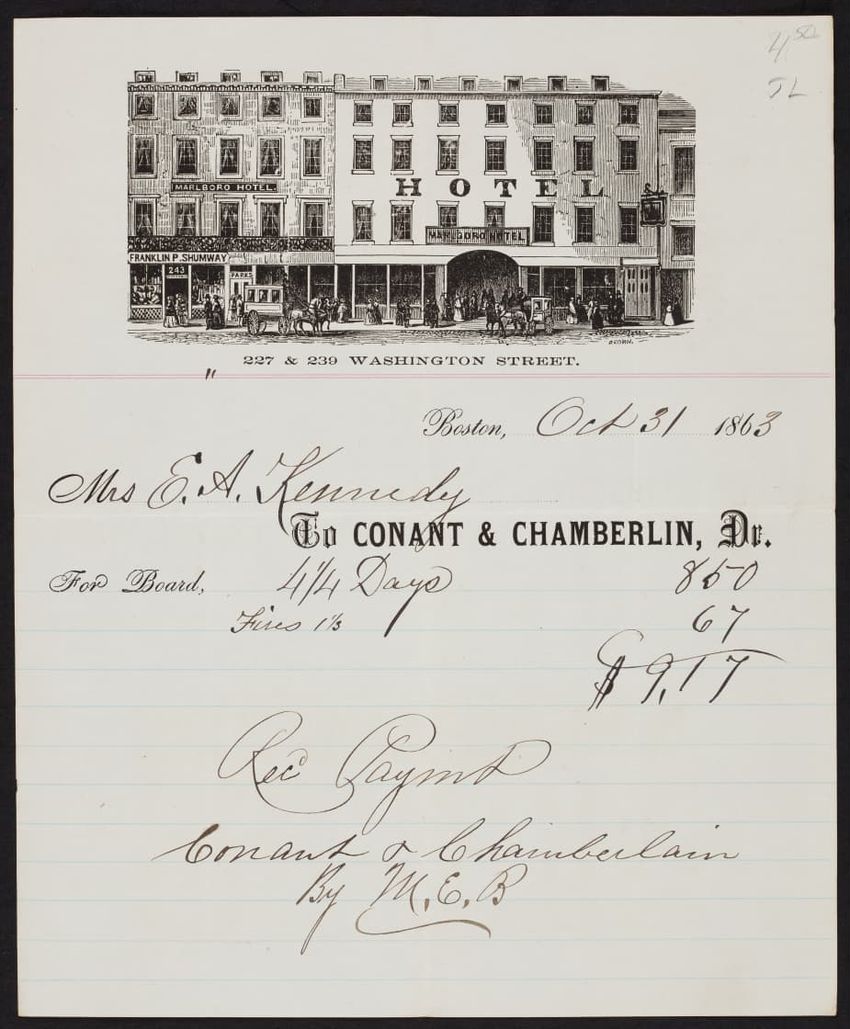 4 50
JL
HOTEL
MARLBORO HOTEL.
MARLBORO HOTEL
FRANKLIN P. SHUMWAY
243
PARKS
227 & 239 WASHINGTON STREET.
"
Boston, Oct 31 1863
Mrs E. A. Kennedy
To CONANT & CHAMBERLIN, Dr.
For Board, 4 1/4 Days 850
Fires 1/3 67
$ 9.17
Recd Paymt
Conant & Chamberlain
By M.E.B